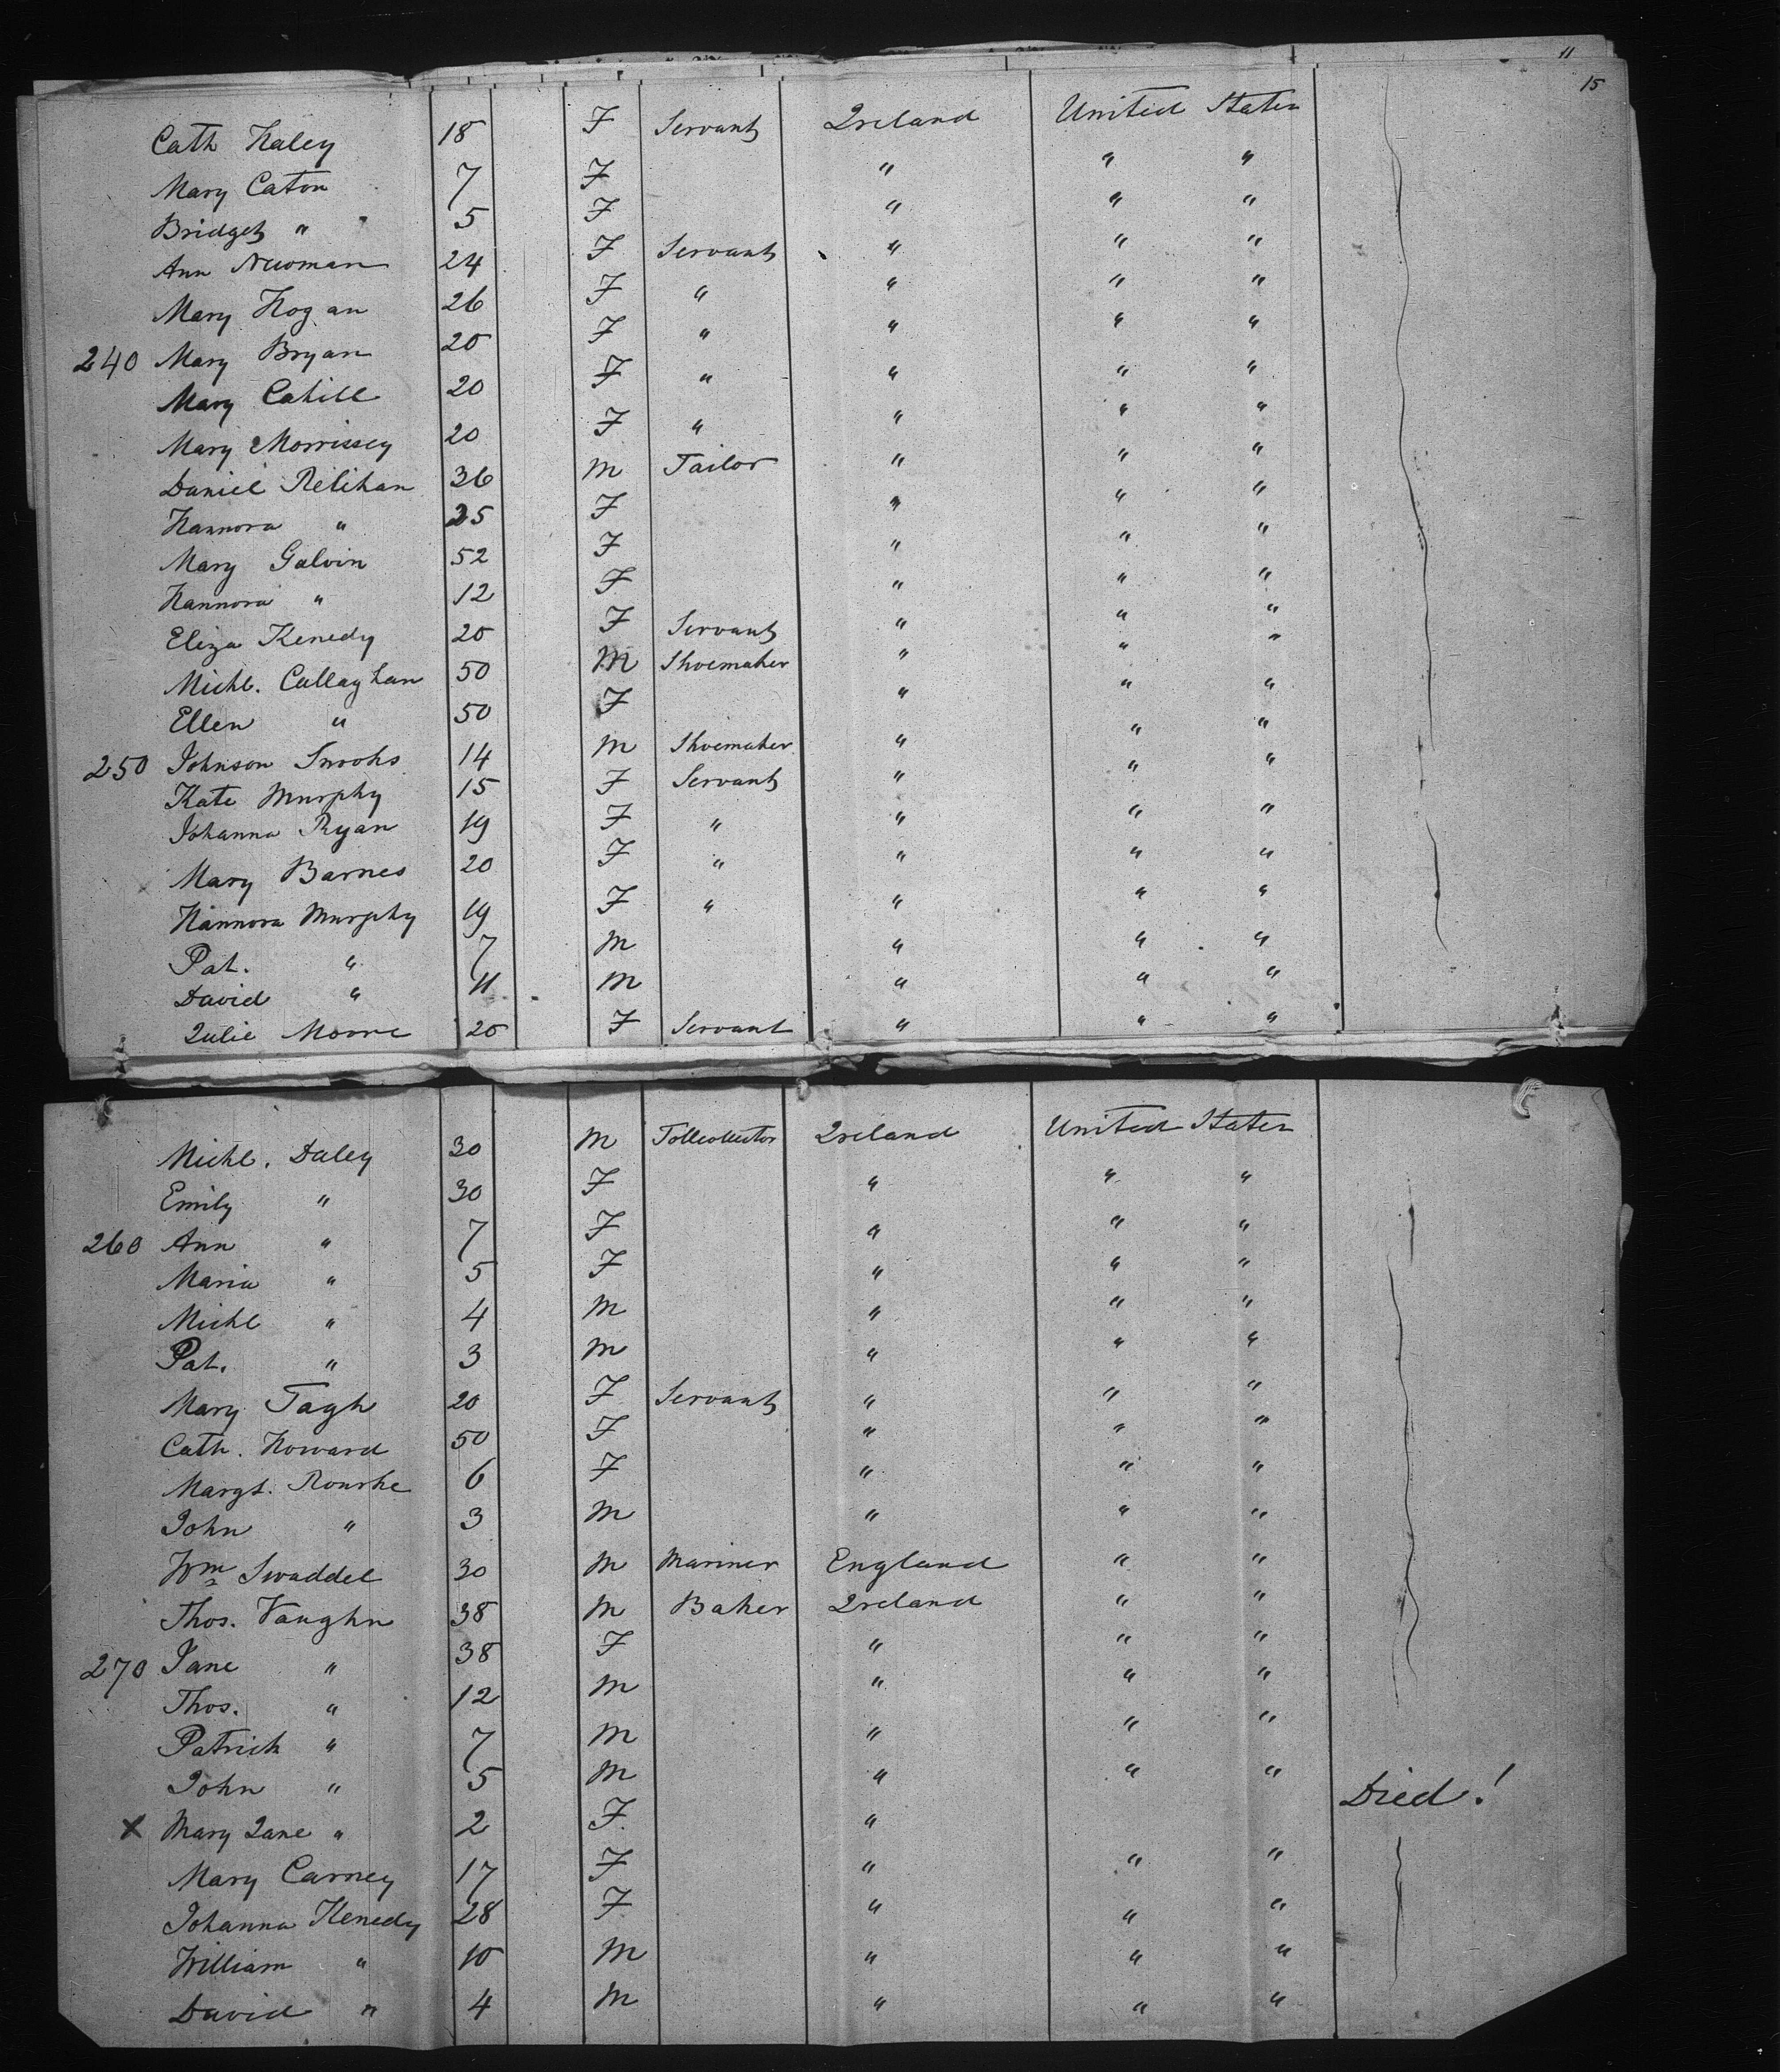 11
15
Cath Haley 18 F Servant Ireland United States
Mary Caton 7 F " " "
Bridget " 5 F " " "
Ann Newman 24 F Servant " " "
Mary Hogan 26 F " " " "
240 Mary Bryan 20 F " " " "
Mary Cahill 20 F " " " "
Mary Morrissey 20 F " " " "
Daniel Relihan 36 M Tailor " " "
Hannora " 25 F " " "
Mary Galvin 52 F " " "
Hannora " 12 F " " "
Eliza Kenedy 20 F Servant " " "
Michl. Callaghan 50 M Shoemaker " " "
Ellen " 50 F " " "
250 Johnson Snooks 14 M Shoemaker " " "
Kate Murphy 15 F Servant " " "
Johanna Ryan 19 F " " " "
Mary Barnes 20 F " " " "
Hannora Murphy 19 F " " " "
Pat. " 7 M " " "
David " 11 M " " "
Julie Moore 20 F Servant " " "
Michl. Daley 30 M Tollcollector Ireland United States
Emily " 30 F " " "
260 Ann " 7 F " " "
Maria " 5 F " " "
Michl " 4 M " " "
Pat. " 3 M " " "
Mary Tagh 20 F Servant " " "
Cath. Howard 50 F " " "
Margt. Rourke 6 F " " "
John " 3 M " " "
Wm Swaddel 30 M Mariner England " "
Thos. Vaughn 38 M Baker Ireland " "
270 Jane " 38 F " " "
Thos. " 12 M " " "
Patrick " 7 M " " "
John " 5 M " " "
X Mary Jane " 2 F " Died!
Mary Carney 17 F " " "
Johanna Kenedy 28 F " " "
William " 10 M " " "
David " 4 M " " "